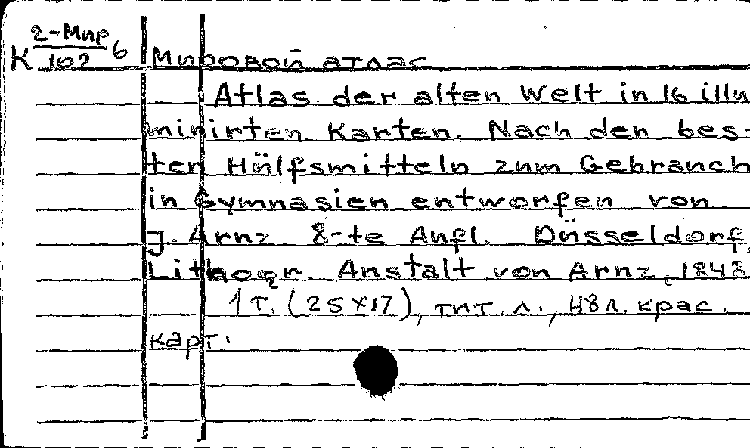 К 2-Мир/102 б
Мировой атлас
Atlas der alten Welt in 16 illu
minirten Karten. Nach den bes-
ten Hülfsmitteln zum Gebrauch
in Gymnasien entworfen von
J. Arnz. 8-te Aufl. Düsseldorf,
Lithogr. Anstalt von Arnz, 1848
1 т. (25х17), тит. л., 48 л. крас.
карт.